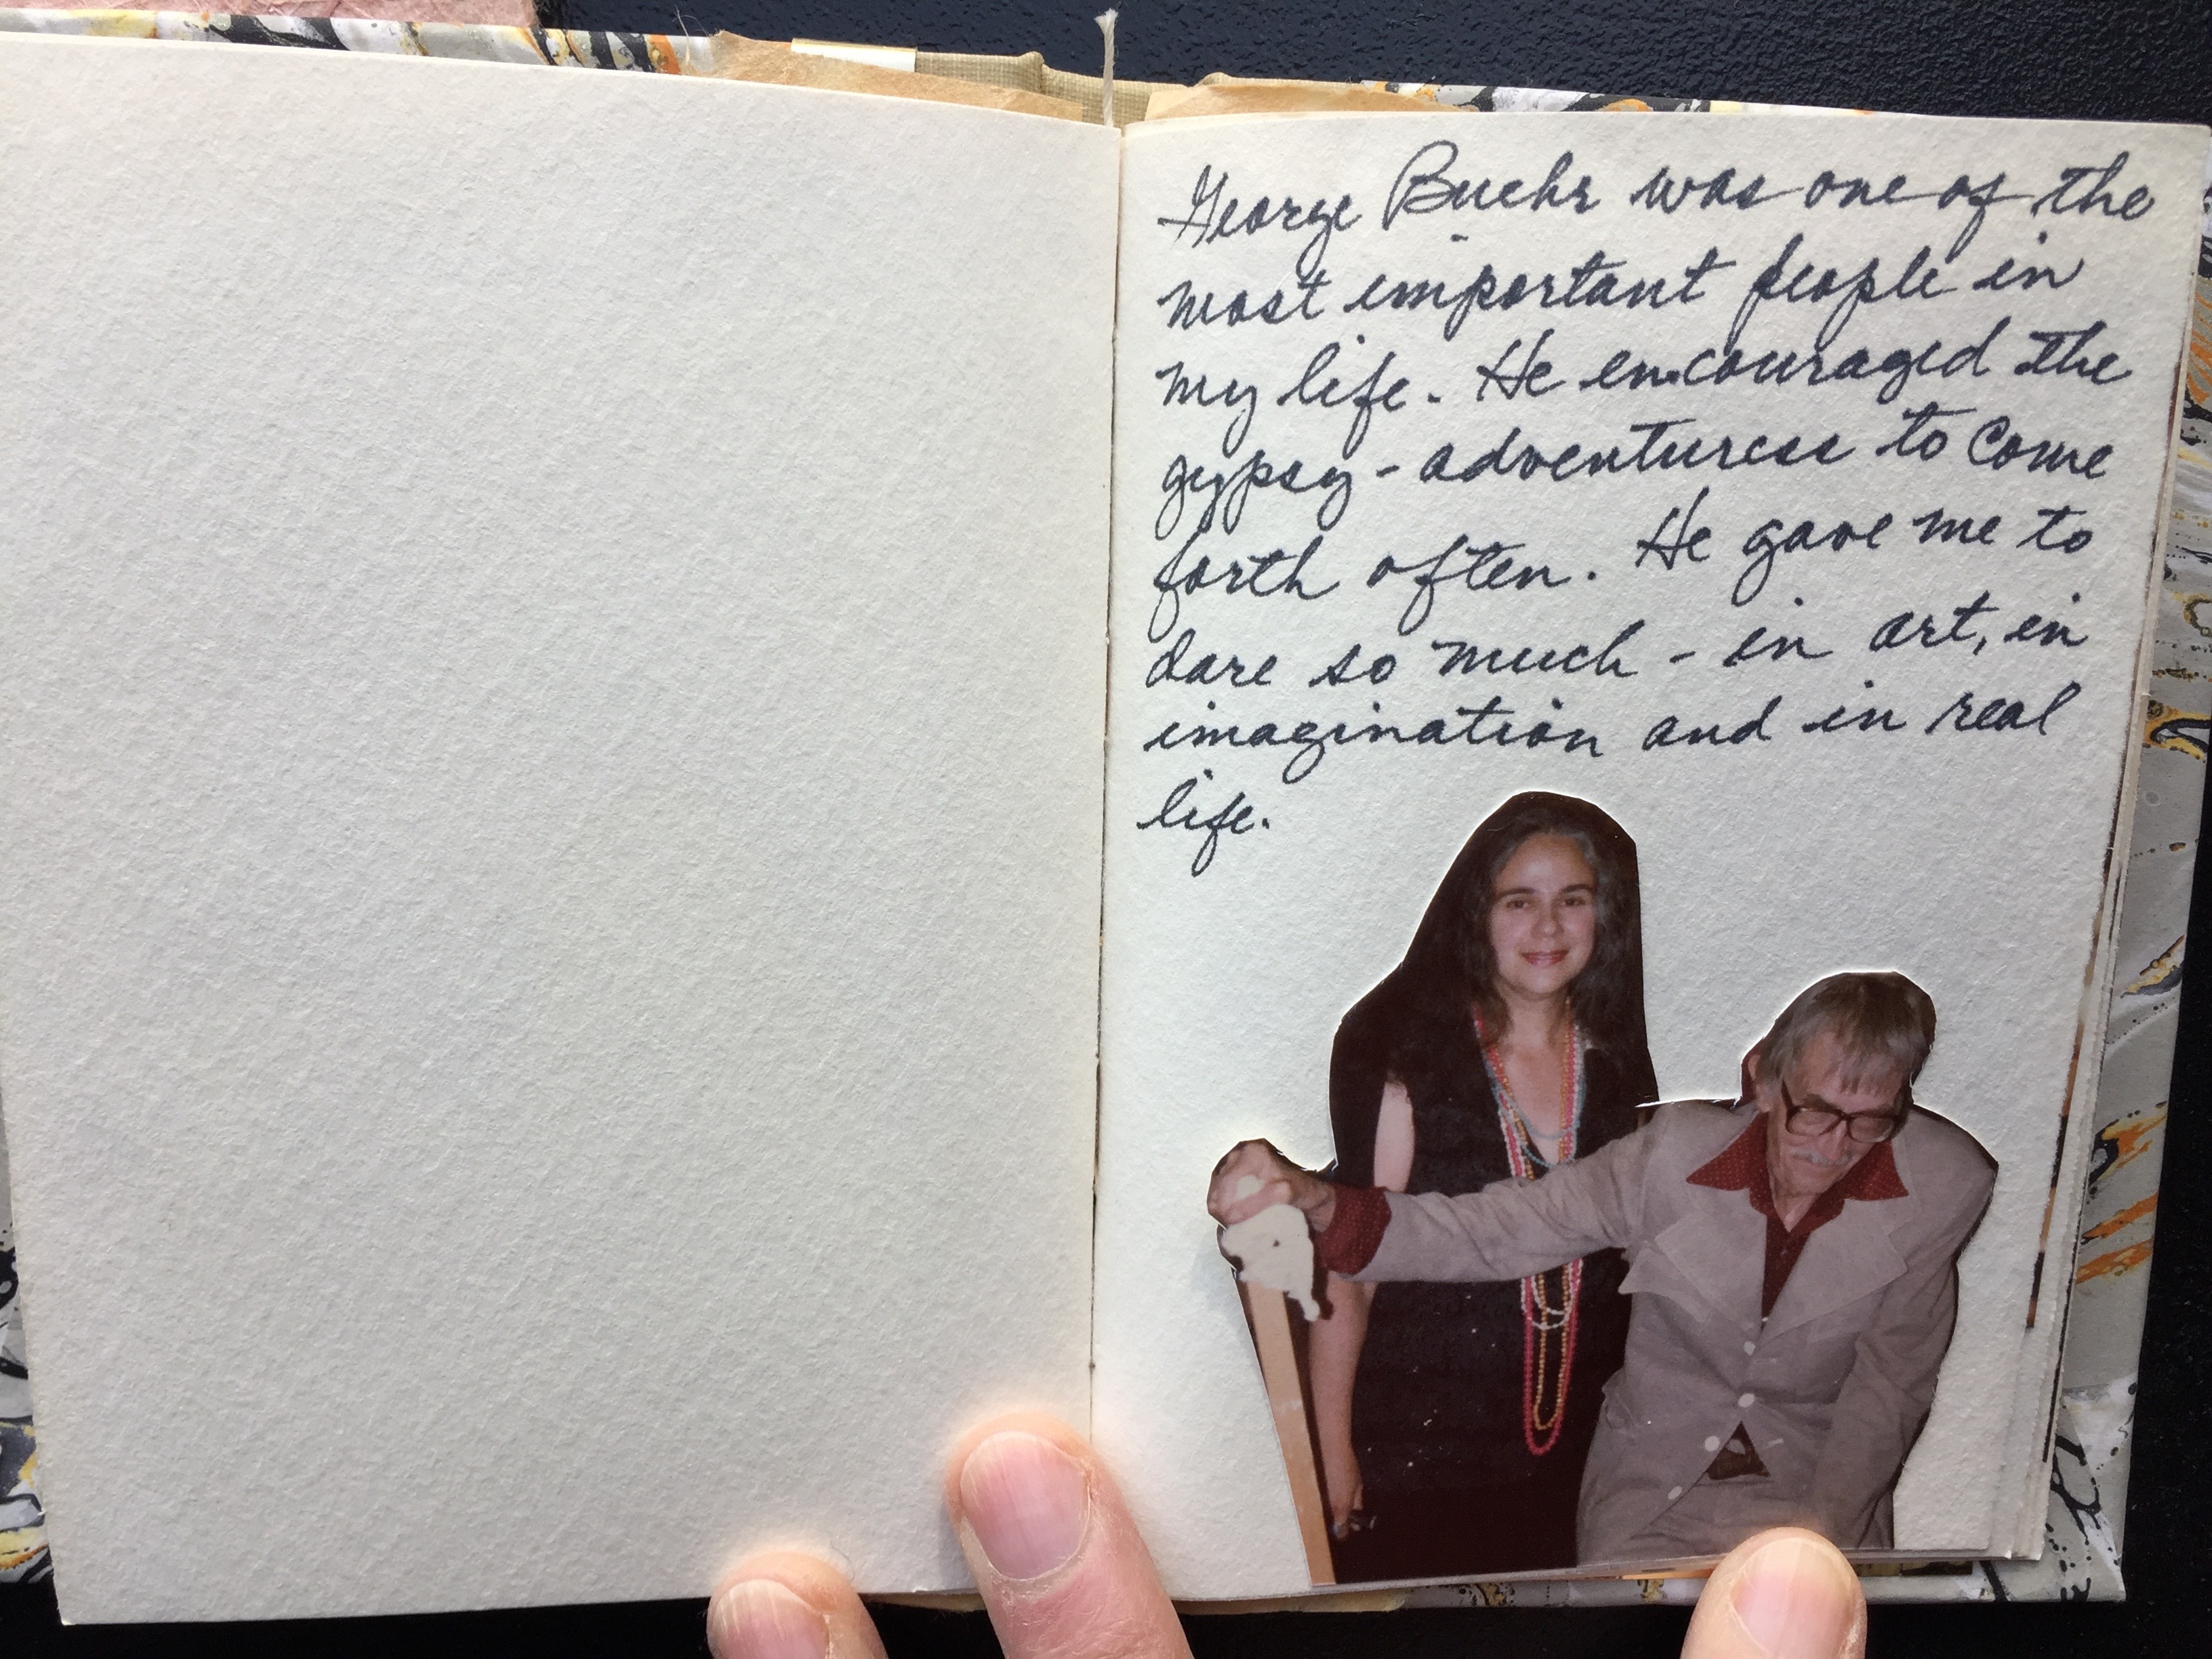 George Buehr was one of the
most important people in
my life. He encouraged the
gypsy - adventuress to come
forth often. He gave me to
dare so much - in art, in
imagination and in real
life.